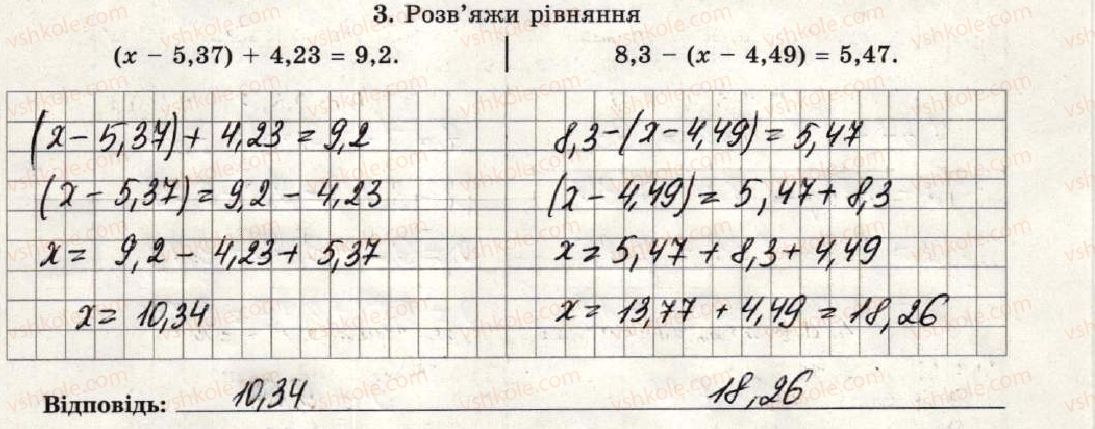 3. Розв'яжи рівняння
(x − 5,37) + 4,23 = 9,2. | 8,3 − (x − 4,49) = 5,47.
(x − 5,37) + 4,23 = 9,2
(x − 5,37) = 9,2 − 4,23
x = 9,2 − 4,23 + 5,37
x = 10,34
8,3 − (x − 4,49) = 5,47
(x − 4,49) = 5,47 + 8,3
x = 5,47 + 8,3 + 4,49
x = 13,77 + 4,49 = 18,26
Відповідь: 10,34 18,26